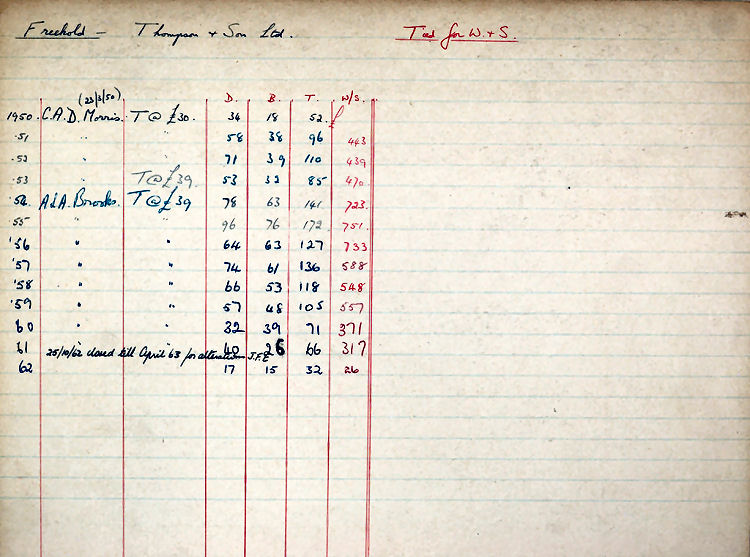 Freehold - Thompson & Son Ltd. Tied for W. & S.
(23/3/50) D. B. T. W/S.
1950. C.A.D. Morris. T @ £30. 34 18 52.
.51 " " 58 38 96 443
.52 " 71 39 110 439
.53 T @ £39. 53 32 85 470
.54. A & A. Brooks. T @ £39 78 63 141 723.
'55 " 96 76 172. 751.
'56 " " 64 63 127 733
'57 " " 74 61 136 588
'58 " " 66 53 118 548
'59 " " 57 48 105 557
60 " " 32 39 71 371
61 40 26 66 317
25/10/62 closed till April 63 for alteration J.F.E
62 17 15 32 26